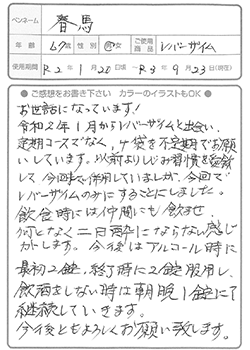 ペンネーム 春馬
年齢 67才 性別 男・女 ご使用商品 レバーザイム
使用期間 R.2年1月20日頃〜R.3年9月23日(現在)
●ご感想をお書き下さい カラーのイラストもOK●
お世話になっています!
令和2年1月からレバーザイムと出会い、
定期コースでなく、4袋を不定期でお願
いしています。以前よりしじみ習慣を登録
して今回まで併用していましたが、今回で
レバーザイムのみにすることにしました。
飲食時には仲間にも飲ませ、
何となく二日酔にならない感じ
がします。今後はアルコール時に
最初2錠、終了時に2錠服用し、
飲酒をしない時は朝晩1錠にて
継続していきます。
今後ともよろしくお願い致します。